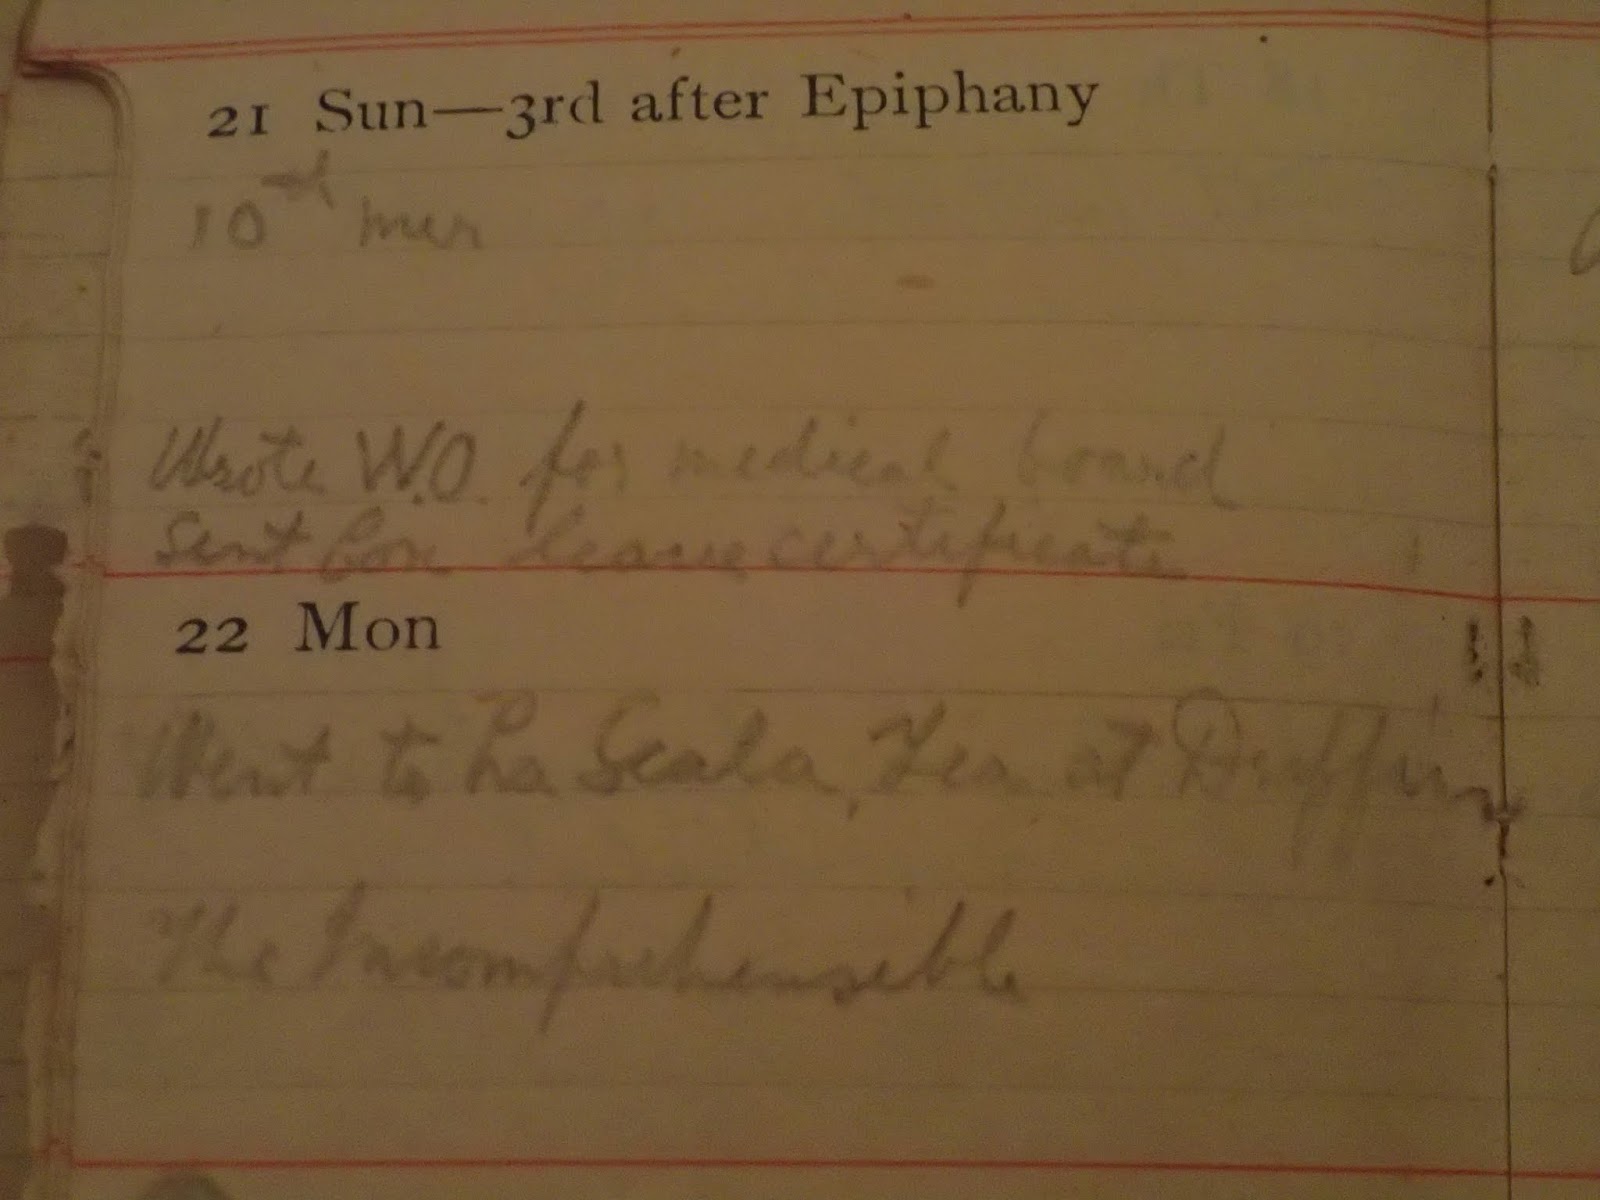 21 Sun—3rd after Epiphany
10
Wrote W.O. for medical board
Sent Cox leave certificate
22 Mon
Went to La Scala, Tea at Druffin
The Incomprehensible